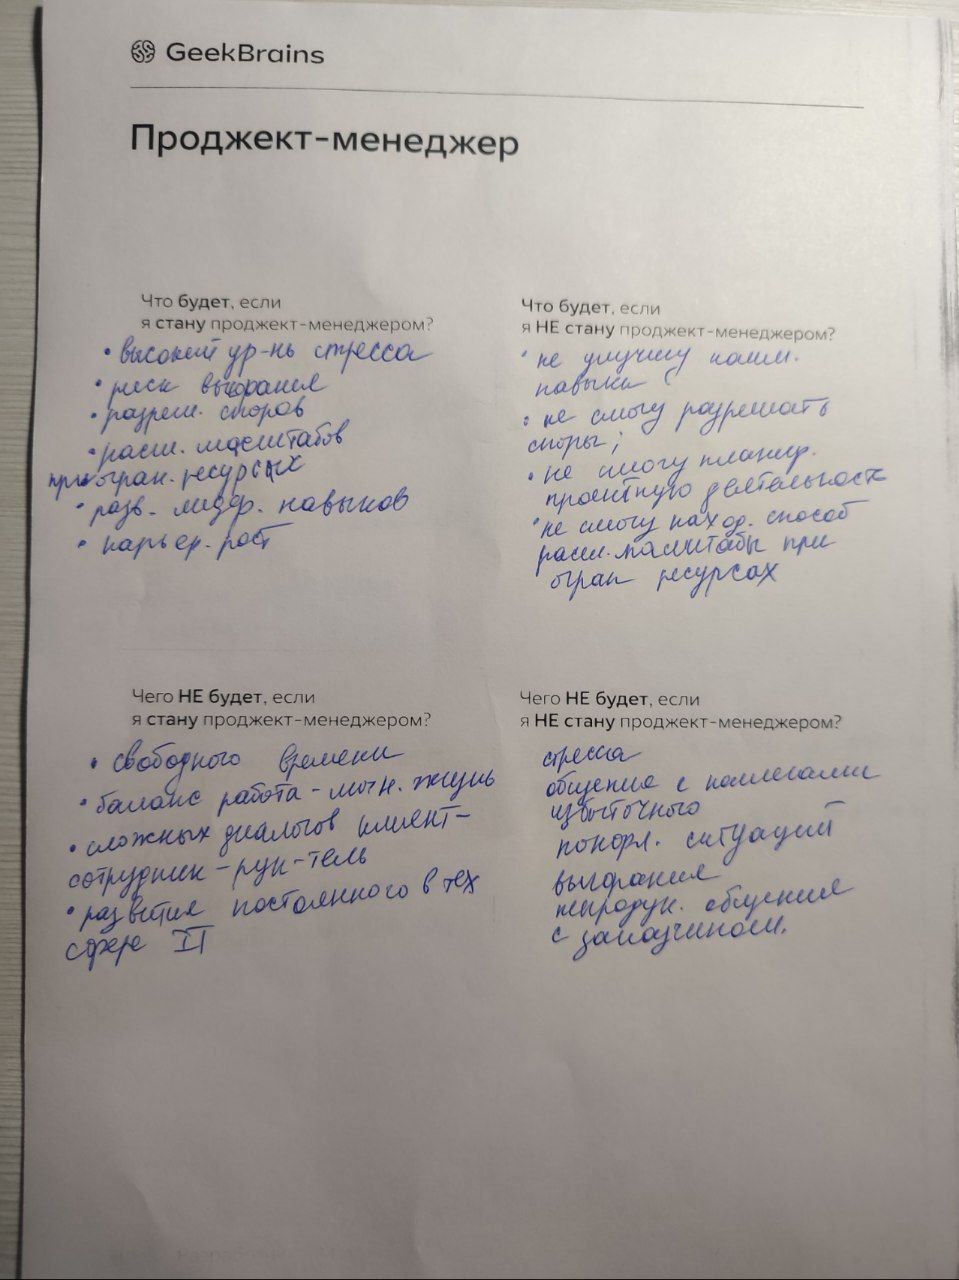 GeekBrains
Проджект-менеджер
Что будет, если
я стану проджект-менеджером?
• высокий ур-нь стресса
• риск выгорания
• разреш. споров
• расш. масштабов
при огран. ресурсах
• разв. лидер. навыков
• карьер. рост
Что будет, если
я НЕ стану проджект-менеджером?
• не улучшу комм.
навыки
• не смогу разрешать
споры;
• не смогу планир.
проектную деятельность
• не смогу наход. способ
расш. масштабы при
огран ресурсах
Чего НЕ будет, если
я стану проджект-менеджером?
• свободного времени
• баланс работа - личн. жизнь
• сложных диалогов клиент-
сотрудник - рук-тель
• развития постоянного в тех
сфере IT
Чего НЕ будет, если
я НЕ стану проджект-менеджером?
стресса
общение с коллегами
избыточного
ситуаций
выгорания
непродук. общения
с заказчиком.